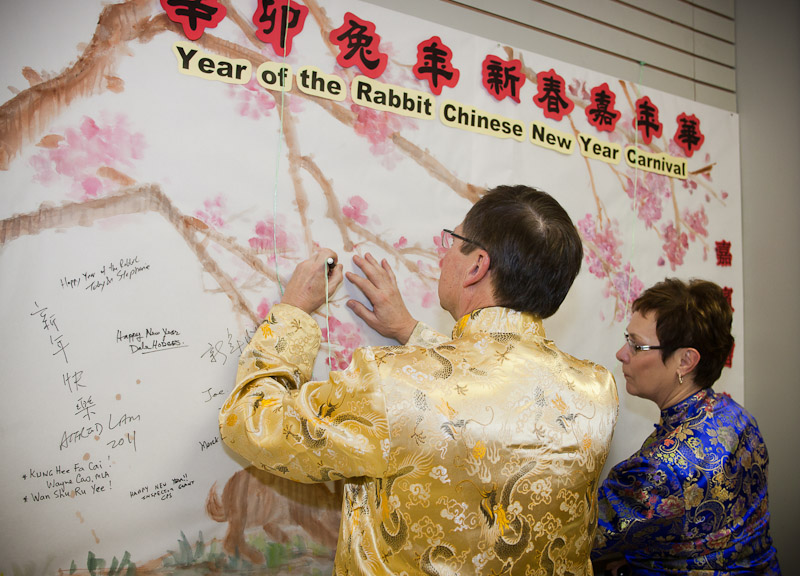 辛卯兔年新春嘉年華
Year of the Rabbit Chinese New Year Carnival
嘉
Happy Year of the Rabbit
Toby & Stephanie
新年快樂
ALFRED LAM
2011
Happy New Year
Dale Hodges
Joe
* KUNG Hee Fa Cai!
Wayne Cao, MLA
* Wan Shu Ru Yee!
HAPPY NEW YEAR!!
INSPECTOR
CPS